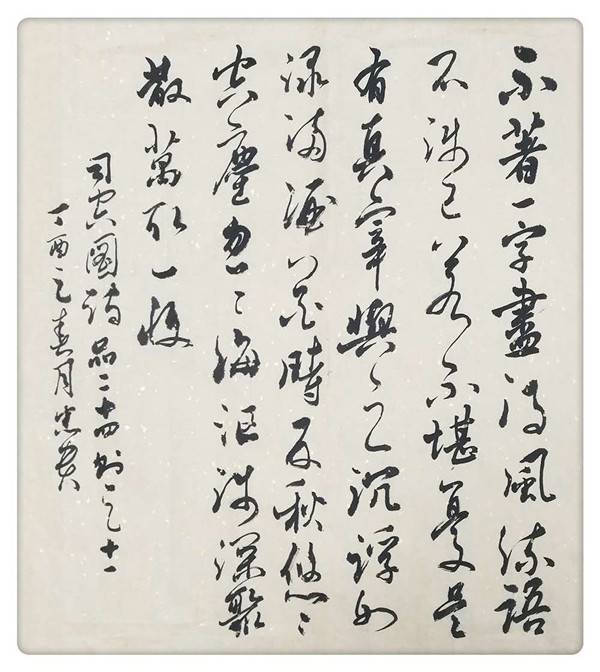 不著一字盡得風流語
不涉己若不堪憂是
有真宰與之沉浮如
淥滿酒花時反秋悠〻
空塵忽〻海漚淺深聚
散萬取一收
司空圖詩品二十四則之十一
丁酉之春月